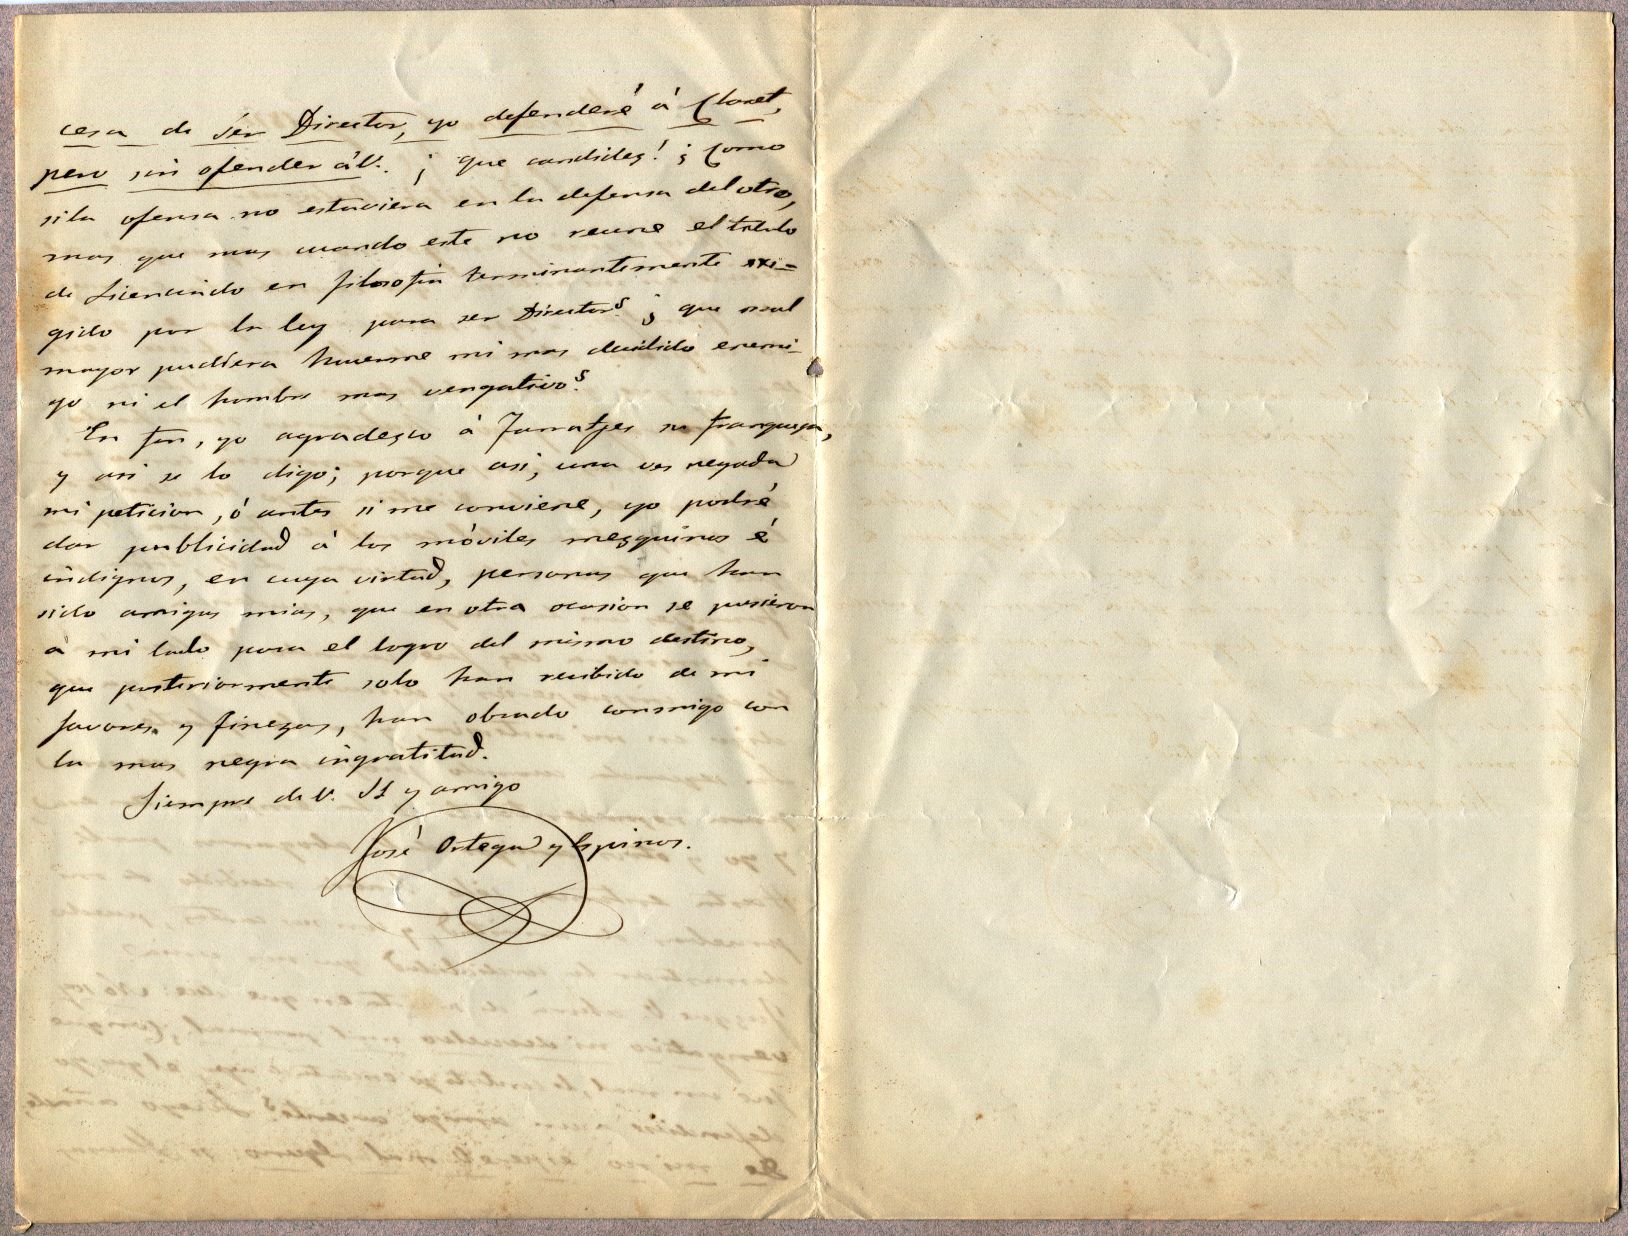 cesa de ser Director, yo defenderé á Cloret,
pero sin ofender á V. ¡ que candidez! ¡ Como
si la ofensa no estuviera en la defensa del otro,
mas que mas cuando este no reune el titulo
de Licenciado en filosofia terminantemente exi=
gido por la ley para ser Director? ¿ que mal
mayor pudiera hacerme mi mas decidido enemi-
go ni el hombre mas vengativo?
En fin, yo agradezco á Farratjes su franqueza,
y asi se lo digo; porque asi, una vez negada
mi peticion, ó antes si me conviene, yo podré
dar publicidad á los móviles mezquinos é
indignos, en cuya virtud, personas que han
sido amigas mias, que en otra ocasion se pusieron
á mi lado para el logro del mismo destino,
que posteriormente solo han recibido de mi
favores y finezas, han obrado conmigo con
la mas negra ingratitud.
Siempre de V. SS y amigo
José Ortega y Espinos.